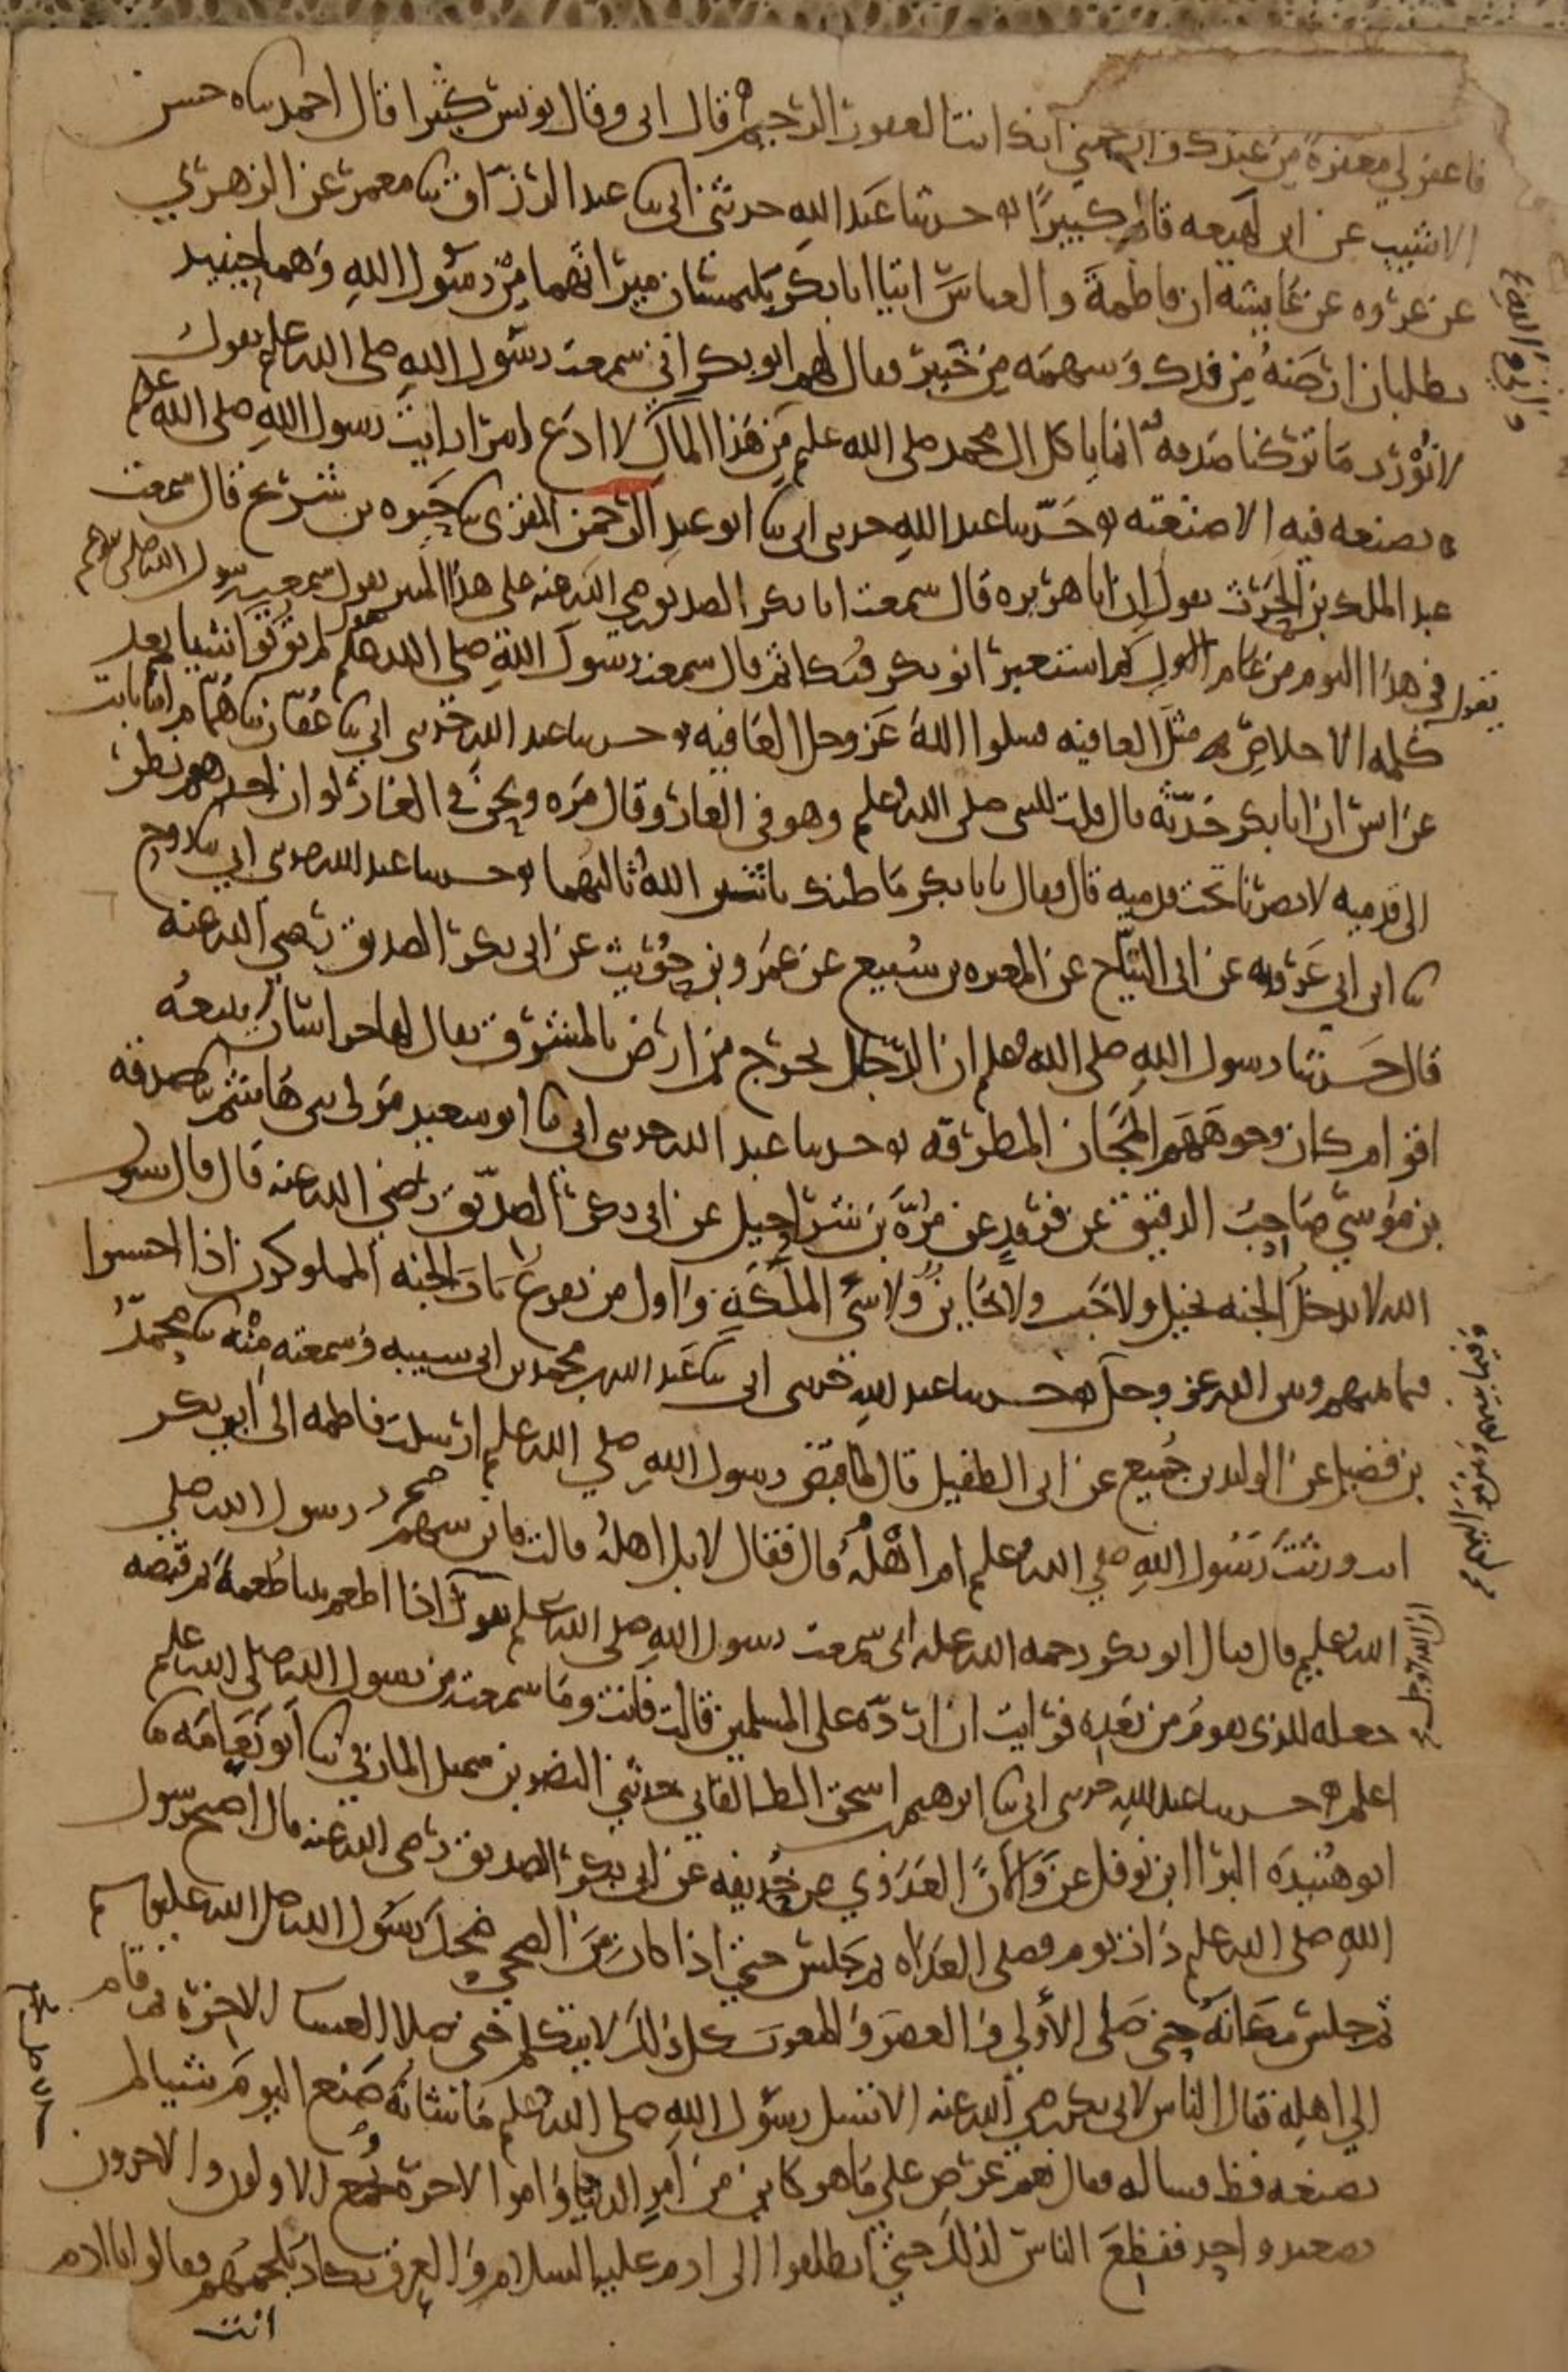 فاغفر لي مغفرة من عندك وارحمني انك انت الغفور الرحيم قال ابى وقال يونس كثيرا قال احمد ساه حسن
الاشيب عن ابن لهيعه قال كبيرًا حدثنا عبد الله حدثني ابي ثنا عبد الرزاق ثنا معمر عن الزهري
عن عروه عن عايشه ان فاطمة والعباس اتيا ابا بكر يلتمسان ميراثهما من رسول الله وهما حينيد
يطلبان ارضه من فدك وسهمه من خيبر فقال لهم ابو بكر اني سمعت رسول الله صلى الله عليه يقول
لا نورث ما تركنا صدقه انما ياكل ال محمد صلى الله عليه من هذا المال لا ادع امرا رايت رسول الله صلى الله عليه
يصنعه فيه الا صنعته حدثنا عبد الله حدثني ابي ثنا ابو عبد الرحمن المقرى ثنا حيوه بن شريح قال سمعت
عبد الملك بن الحرث يقول ان ابا هريره قال سمعت ابا بكر الصديق رضي الله عنه على هذا المنبر يقول سمعت رسول الله صلى الله عليه
يقول في هذا اليوم من عام الاول ثم استعبر ابو بكر فبكا ثم قال سمعت رسول الله صلى الله عليه يقول لم تؤتوا شيا بعد
كلمه الاخلاص مثل العافيه فسلوا الله عز وجل العافيه حدثنا عبد الله حدثني ابي ثنا عفان ثنا همام انا ثابت
عن انس ان ابا بكر حدثه قال قلت للنبي صلى الله عليه وهو في الغار وقال مره ونحن في الغار لو ان احدهم نظر
الى قدميه لابصرنا تحت قدميه قال فقال يا با بكر ما ظنك باثنين الله ثالثهما حدثنا عبد الله حدثني ابي ثنا روح
ثنا ابن ابي عروبه عن ابي التياح عن المغيره بن سبيع عن عمرو بن حريث عن ابي بكر الصديق رضي الله عنه
قال حدثنا رسول الله صلى الله عليه ان الدجال يخرج من ارض بالمشرق يقال لها خراسان يتبعه
اقوام كان وجوههم المجان المطرقه حدثنا عبد الله حدثني ابي ثنا ابو سعيد مولى بني هاشم ثنا صدقه
بن موسى صاحب الدقيق عن فرقد عن مره بن شراحيل عن ابي بكر الصديق رضي الله عنه قال قال رسول
الله لا يدخل الجنه بخيل ولا خب ولا خاين ولا سي الملكة واول من يقرع باب الجنه المملوكون اذا احسنوا
فيما بينهم وبين الله عز وجل حدثنا عبد الله حدثني ابي ثنا عبد الله بن محمد بن ابي شيبه وسمعته منه ثنا محمد
بن فضيل عن الوليد بن جميع عن ابي الطفيل قال لما قبض رسول الله صلي الله عليه ارسلت فاطمه الى ابي بكر
انت ورثت رسول الله صلي الله عليه ام اهله قال فقال لا بل اهله قالت فاين سهم رسول الله صلي
الله عليه قال فقال ابو بكر رحمه الله عليه اني سمعت رسول الله صلى الله عليه يقول اذا اطعم نبيا طعمة ثم قبضه
جعله للذى يقوم من بعده فرايت ان ارده على المسلمين قالت فانت وما سمعت من رسول الله صلى الله عليه
اعلم حدثنا عبد الله حدثني ابي ثنا ابرهيم اسحق الطالقاني حدثني النضر بن شميل المازني ثنا ابو نعامه ثنا
ابو هنيده البرا ابن نوفل عن والان العدوي عن حذيفه عن ابي بكر الصديق رضي الله عنه قال اصبح رسول
الله صلى الله عليه ذات يوم فصلى الغداه ثم جلس حتى اذا كان من الضحى ضحك رسول الله صلى الله عليه وسلم
ثم جلس مكانه حتى صلى الاولى والعصر والمغرب كل ذلك لا يتكلم حتى صلا العشا الاخرة ثم قام
الى اهله فقال الناس لابي بكر رضي الله عنه الا تسل رسول الله صلى الله عليه ما شانه صنع اليوم شيا لم
يصنعه قط فساله فقال نعم عرض علي ما هو كاين من امر الدنيا وامر الاخرة فجمع الاولون والاخرون
بصعيد واحد ففظع الناس لذلك حتى انطلقوا الى ادم عليه السلام والعرق يكاد يلجمهم فقالوا يا ادم
انت
وفيما بينهم وبين
ان الله عز وجل